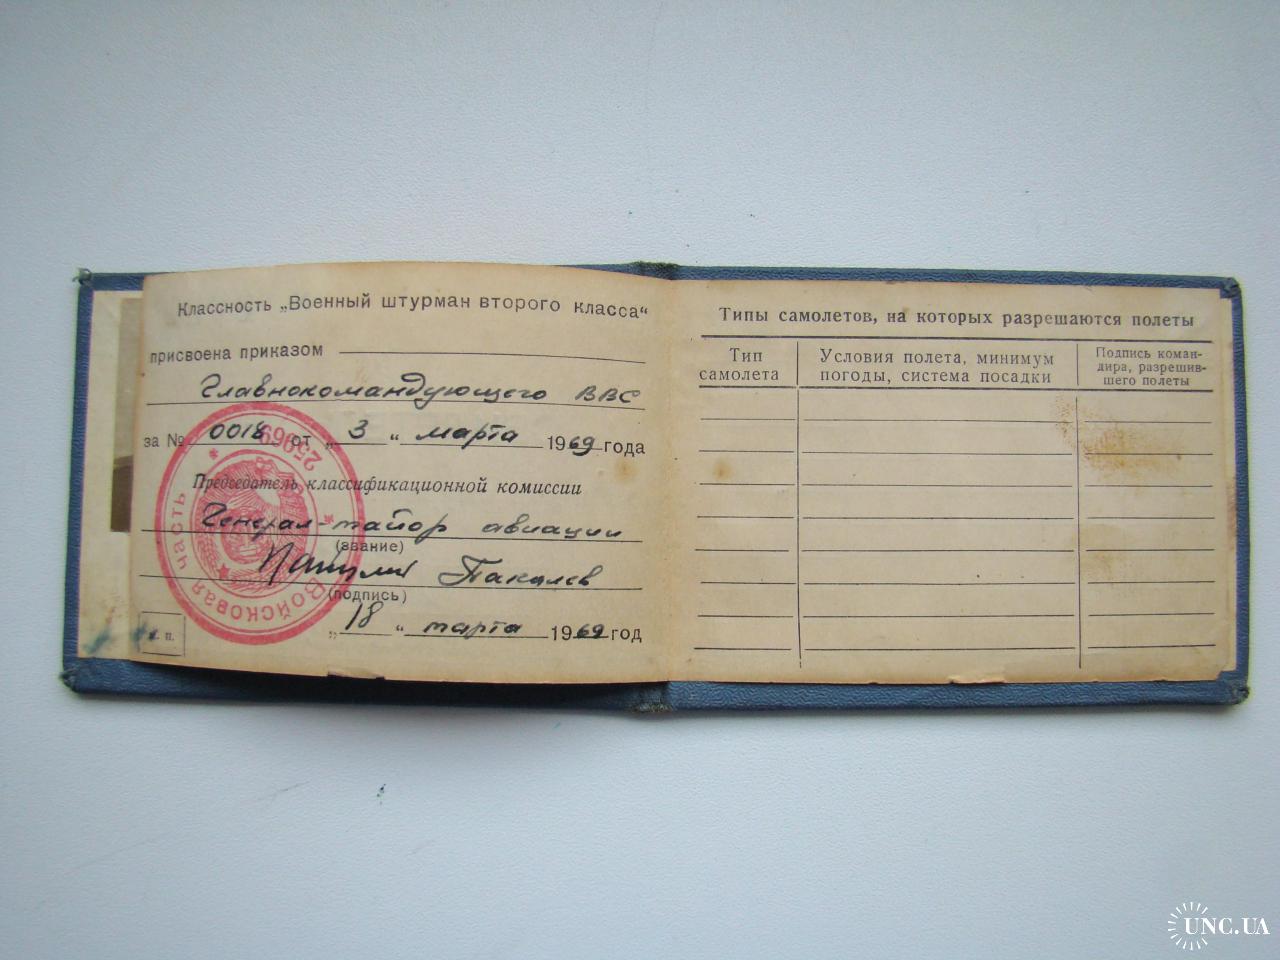 Классность „Военный штурман второго класса“
присвоена приказом
Главнокомандующего ВВС
за № 0018 от „ 3 “ марта 1969 года
Председатель классификационной комиссии
Генерал-майор авиации
(звание)
(подпись)
„ 18 “ марта 1969 год
м. п.
Войсковая часть
25969
Типы самолетов, на которых разрешаются полеты
Тип самолета
Условия полета, минимум
погоды, система посадки
Подпись коман-
дира, разрешив-
шего полеты
UNC.UA